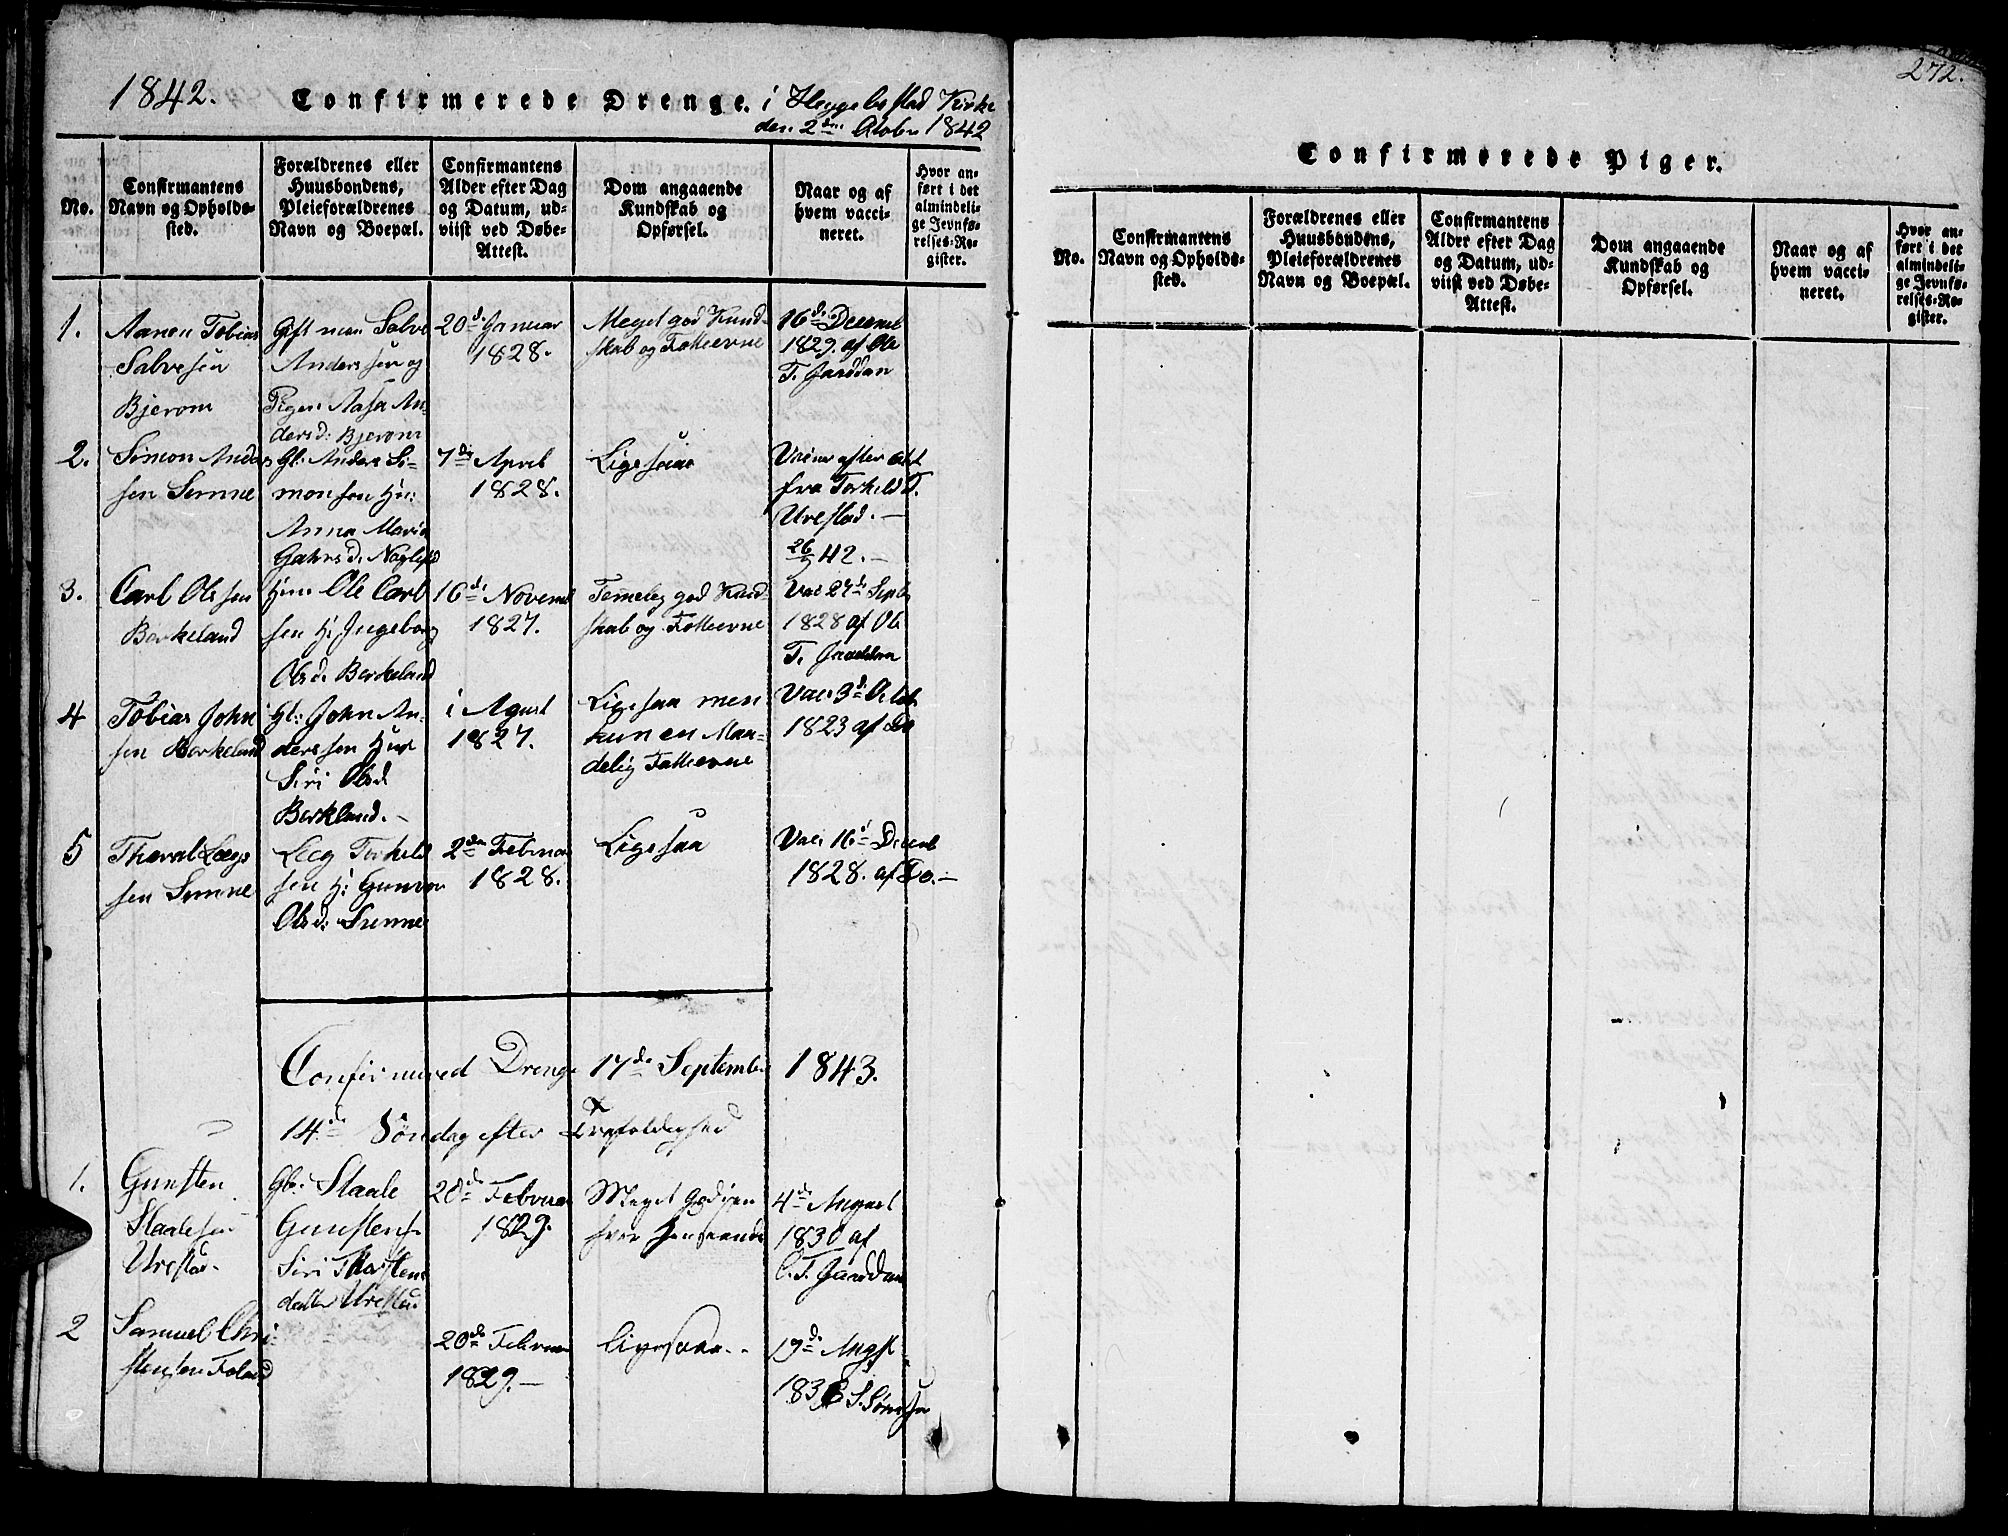 1842. Confirmerede Drenge. i Heggebostad Kirke
den 2den Octobr 1842
No.
Confirmantens
Navn og Opholds-
sted.
Forældrenes eller
Huusbondens,
Pleieforældrenes
Navn og Boepæl.
Confirmantens
Alder efter Dag
og Datum, ud-
viist ved Døbe-
Attest.
Dom angaaende
Kundskab og
Opførsel.
Naar og af
hvem vacci-
neret.
Hvor an-
ført i det
almindeli-
ge Jevnfø-
relses-Re-
gister.
1.
Aanon Tobias
Salvesen
Bjerom
Gift man Salve
Anderssen og
Pigen Aasa An-
dersd: Bjerom
20de Januar
1828.
Meget god Kund-
skab og Fatteevne
16de Decemb
1829. af Ole
T. Jarddan
2.
Simon Anders
sen Semne
Gl: Anders Si-
monsen Hu:
Anna Maria
7de April
1828.
Ligesaa
Vacine efter Att
fra Torkeld T.
Urestad. —
26/9 42. —
3.
Carl Olssen
Birkeland
Hm: Ole Carl
sen H: Ingeborg
Olsd: Birkeland
16de Novemb
1827.
Temelig god Kund-
skab og Fatteevne
Vac 27de Septb
1828 af Ol.
T. Jarddan
4
Tobias John
sen Birkeland
Hl: John An-
derssen Hus
Siri Olsd
Birkland. -
i Agust
1827.
Ligesaa men
kun en Maa-
delig Fatteevne
Vaci 3de Octb
1823 af Do
5
Thorval Leegs
sen Semne
Leeg Torkeld
sen H: Gunvor
Olsd: Semne
2den Februar
1828.
Ligesaa
Vaci 16de Decemb
1828. af Do. —
Confirmered Drenge 17de September 1843.
14de Søndag efter Trefoldighed
1.
Gunsten
Staalesen
Urestad.
Gb: Staale
Gunstens
Siri Thorstens
datter Urestad
20de Februar
1829.
Meget god i en
hver Henseende
4de August
1830 af
O. T. Jarddan
2
Samuel Chri-
stensen Foland
20de Februar
1829. —
Ligesaa. -
19de Augst
S. Sørensen
272.
Confirmerede Piger.
No.
Confirmantens
Navn og Opholds-
sted.
Forældrenes eller
Huusbondens,
Pleieforældrenes
Navn og Boepæl.
Confirmantens
Alder efter Dag
og Datum, ud-
viist ved Døbe-
Attest.
Dom angaaende
Kundskab og
Opførsel.
Naar og af
hvem vacci-
neret.
Hvor an-
ført i det
almindeli-
ge Jevnfø-
relses-Re-
gister.